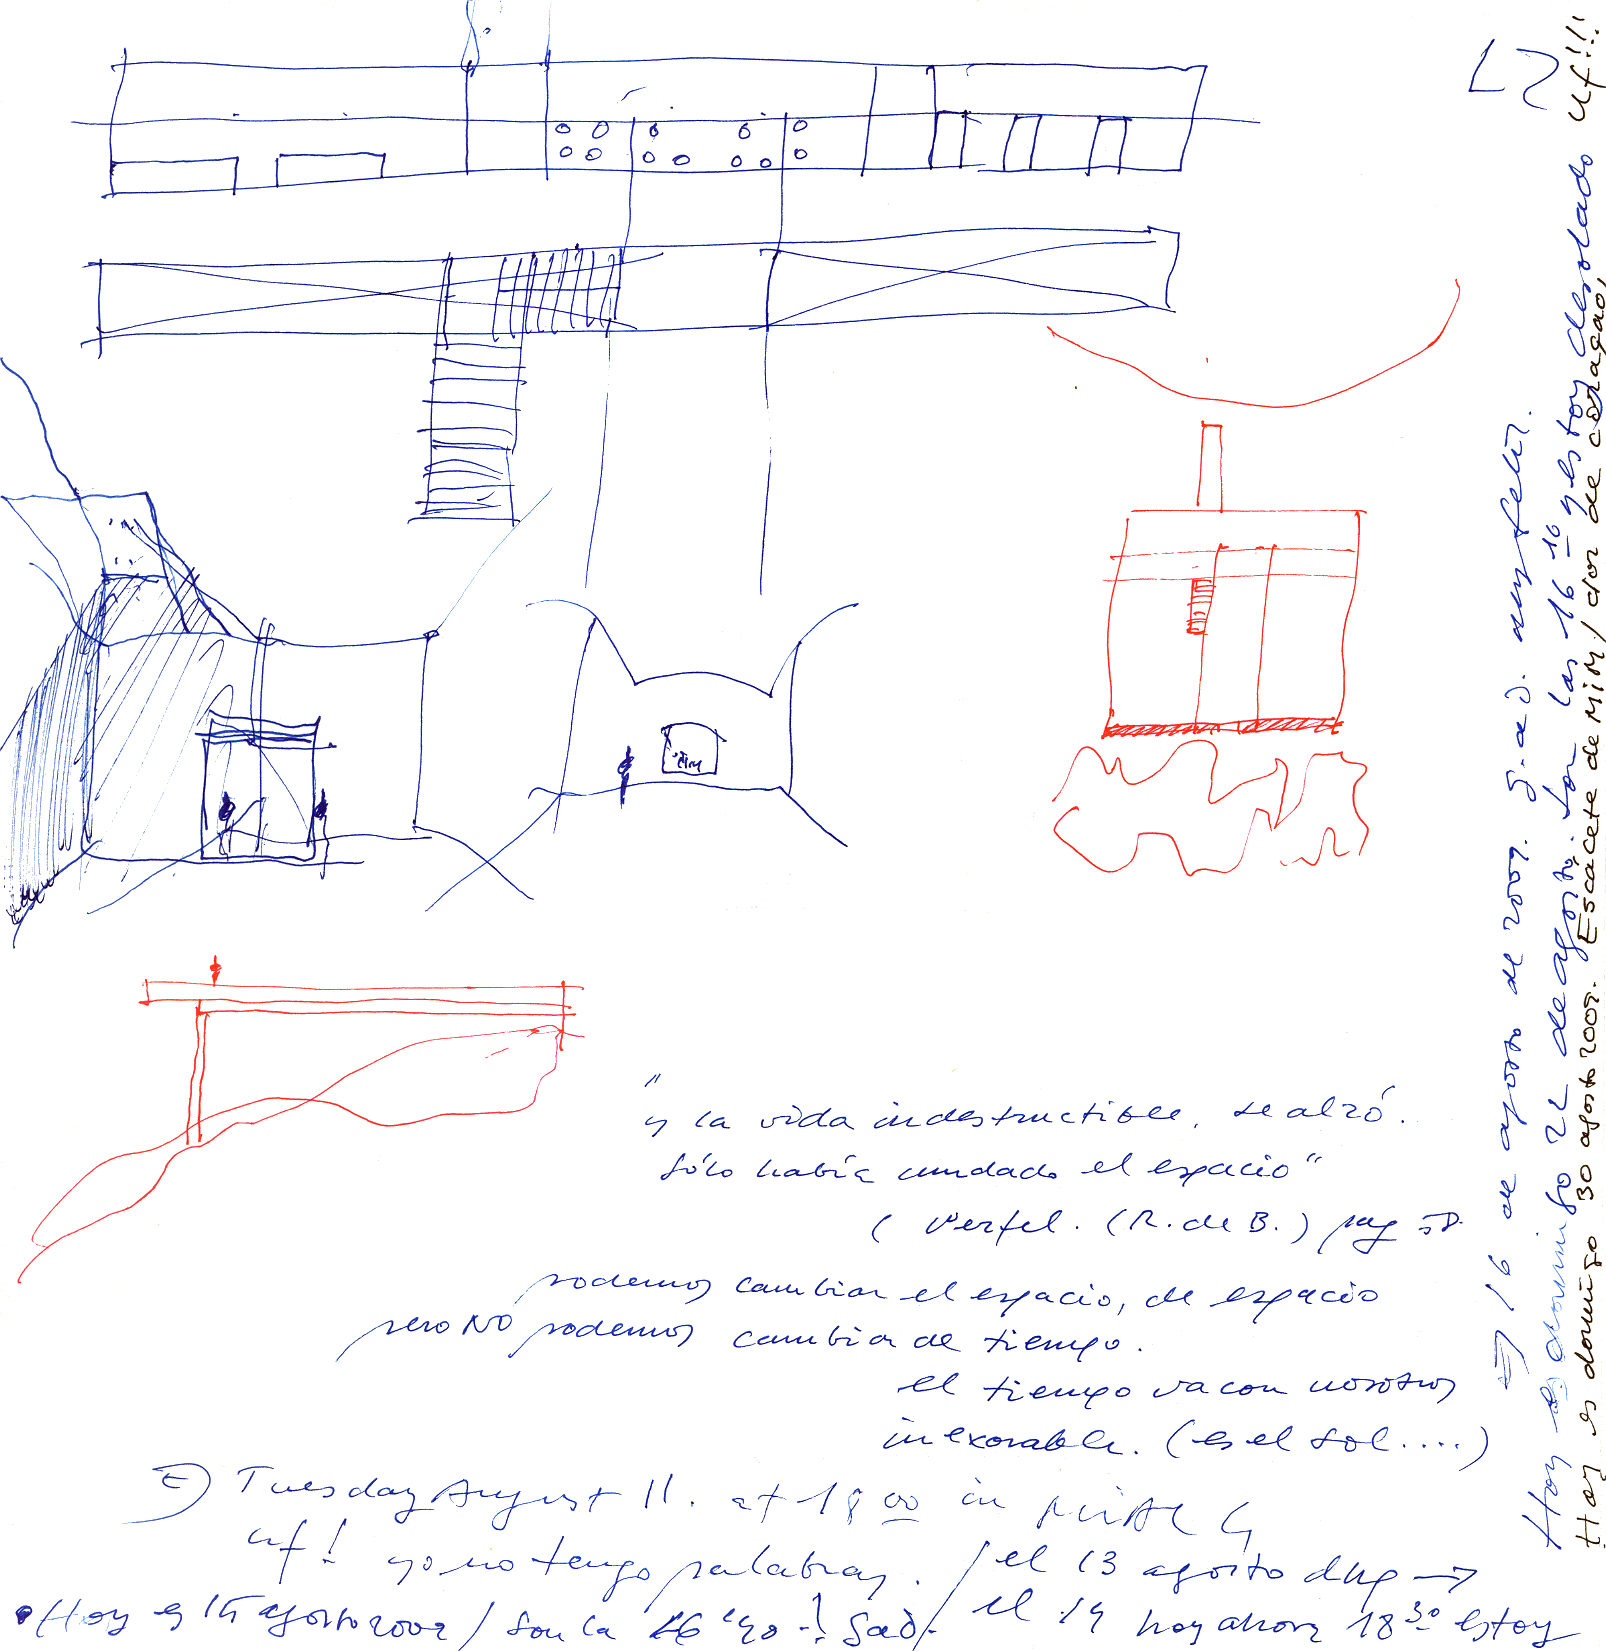 "y la vida indestructible, se alzó.
Sólo había mudado el espacio"
( Werfel. (R. de B.) pag 58.
podemos cambiar el espacio, de espacio
pero NO podemos cambiar de tiempo.
el tiempo va con nosotros
inexorable. (es el sol....)
Tuesday August 11. at 18 00 in
uf! yo no tengo palabras. / el 13 agosto
Hoy es 15 agosto 2009 / son la 16 / el 14 hoy ahora 18 30 estoy
16 de agosto de 2009. muy feliz.
Hoy es domingo 22 de agosto. Son las 16 10 y estoy desolado uf!!!
Hoy es domingo 30 agosto 2009. Escacete de MiM / dor de coraçao,